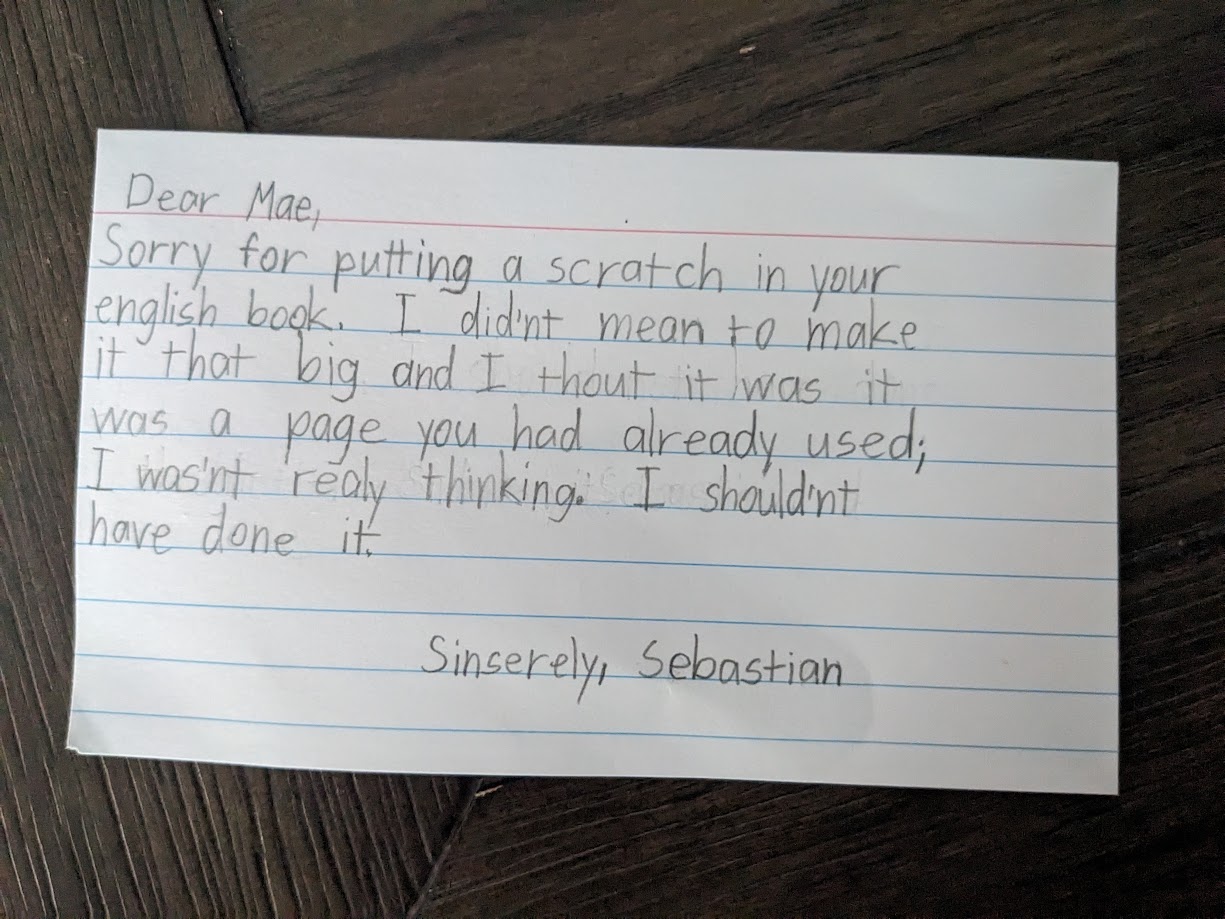 Dear Mae,
Sorry for putting a scratch in your
english book. I did'nt mean to make
it that big and I thout it was it
was a page you had already used;
I was'nt realy thinking. I should'nt
have done it.
Sinserely, Sebastian